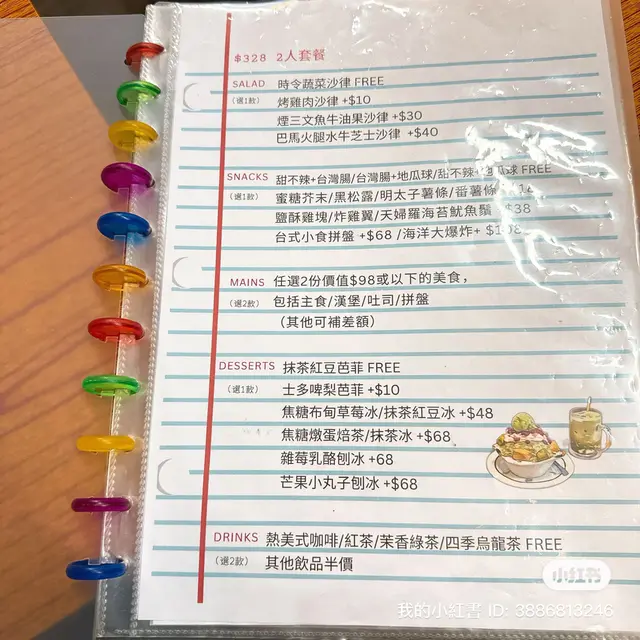 $328 2人套餐
SALAD 時令蔬菜沙律 FREE
(選1款) 烤雞肉沙律 +$10
煙三文魚牛油果沙律 +$30
巴馬火腿水牛芝士沙律 +$40
SNACKS 甜不辣+台灣腸/台灣腸+地瓜球/甜不辣+地瓜球 FREE
(選1款) 蜜糖芥末/黑松露/明太子薯條/番薯條
鹽酥雞塊/炸雞翼/天婦羅海苔魷魚鬚 $38
台式小食拼盤 +$68 /海洋大爆炸+
MAINS 任選2份價值$98或以下的美食,
(選2款) 包括主食/漢堡/吐司/拼盤
(其他可補差額)
DESSERTS 抹茶紅豆芭菲 FREE
(選1款) 士多啤梨芭菲 +$10
焦糖布甸草莓冰/抹茶紅豆冰 +$48
焦糖燉蛋焙茶/抹茶冰 +$68
雜莓乳酪刨冰 +68
芒果小丸子刨冰 +$68
DRINKS 熱美式咖啡/紅茶/茉香綠茶/四季烏龍茶 FREE
(選2款) 其他飲品半價
小红书
我的小紅書 ID: 3886813246